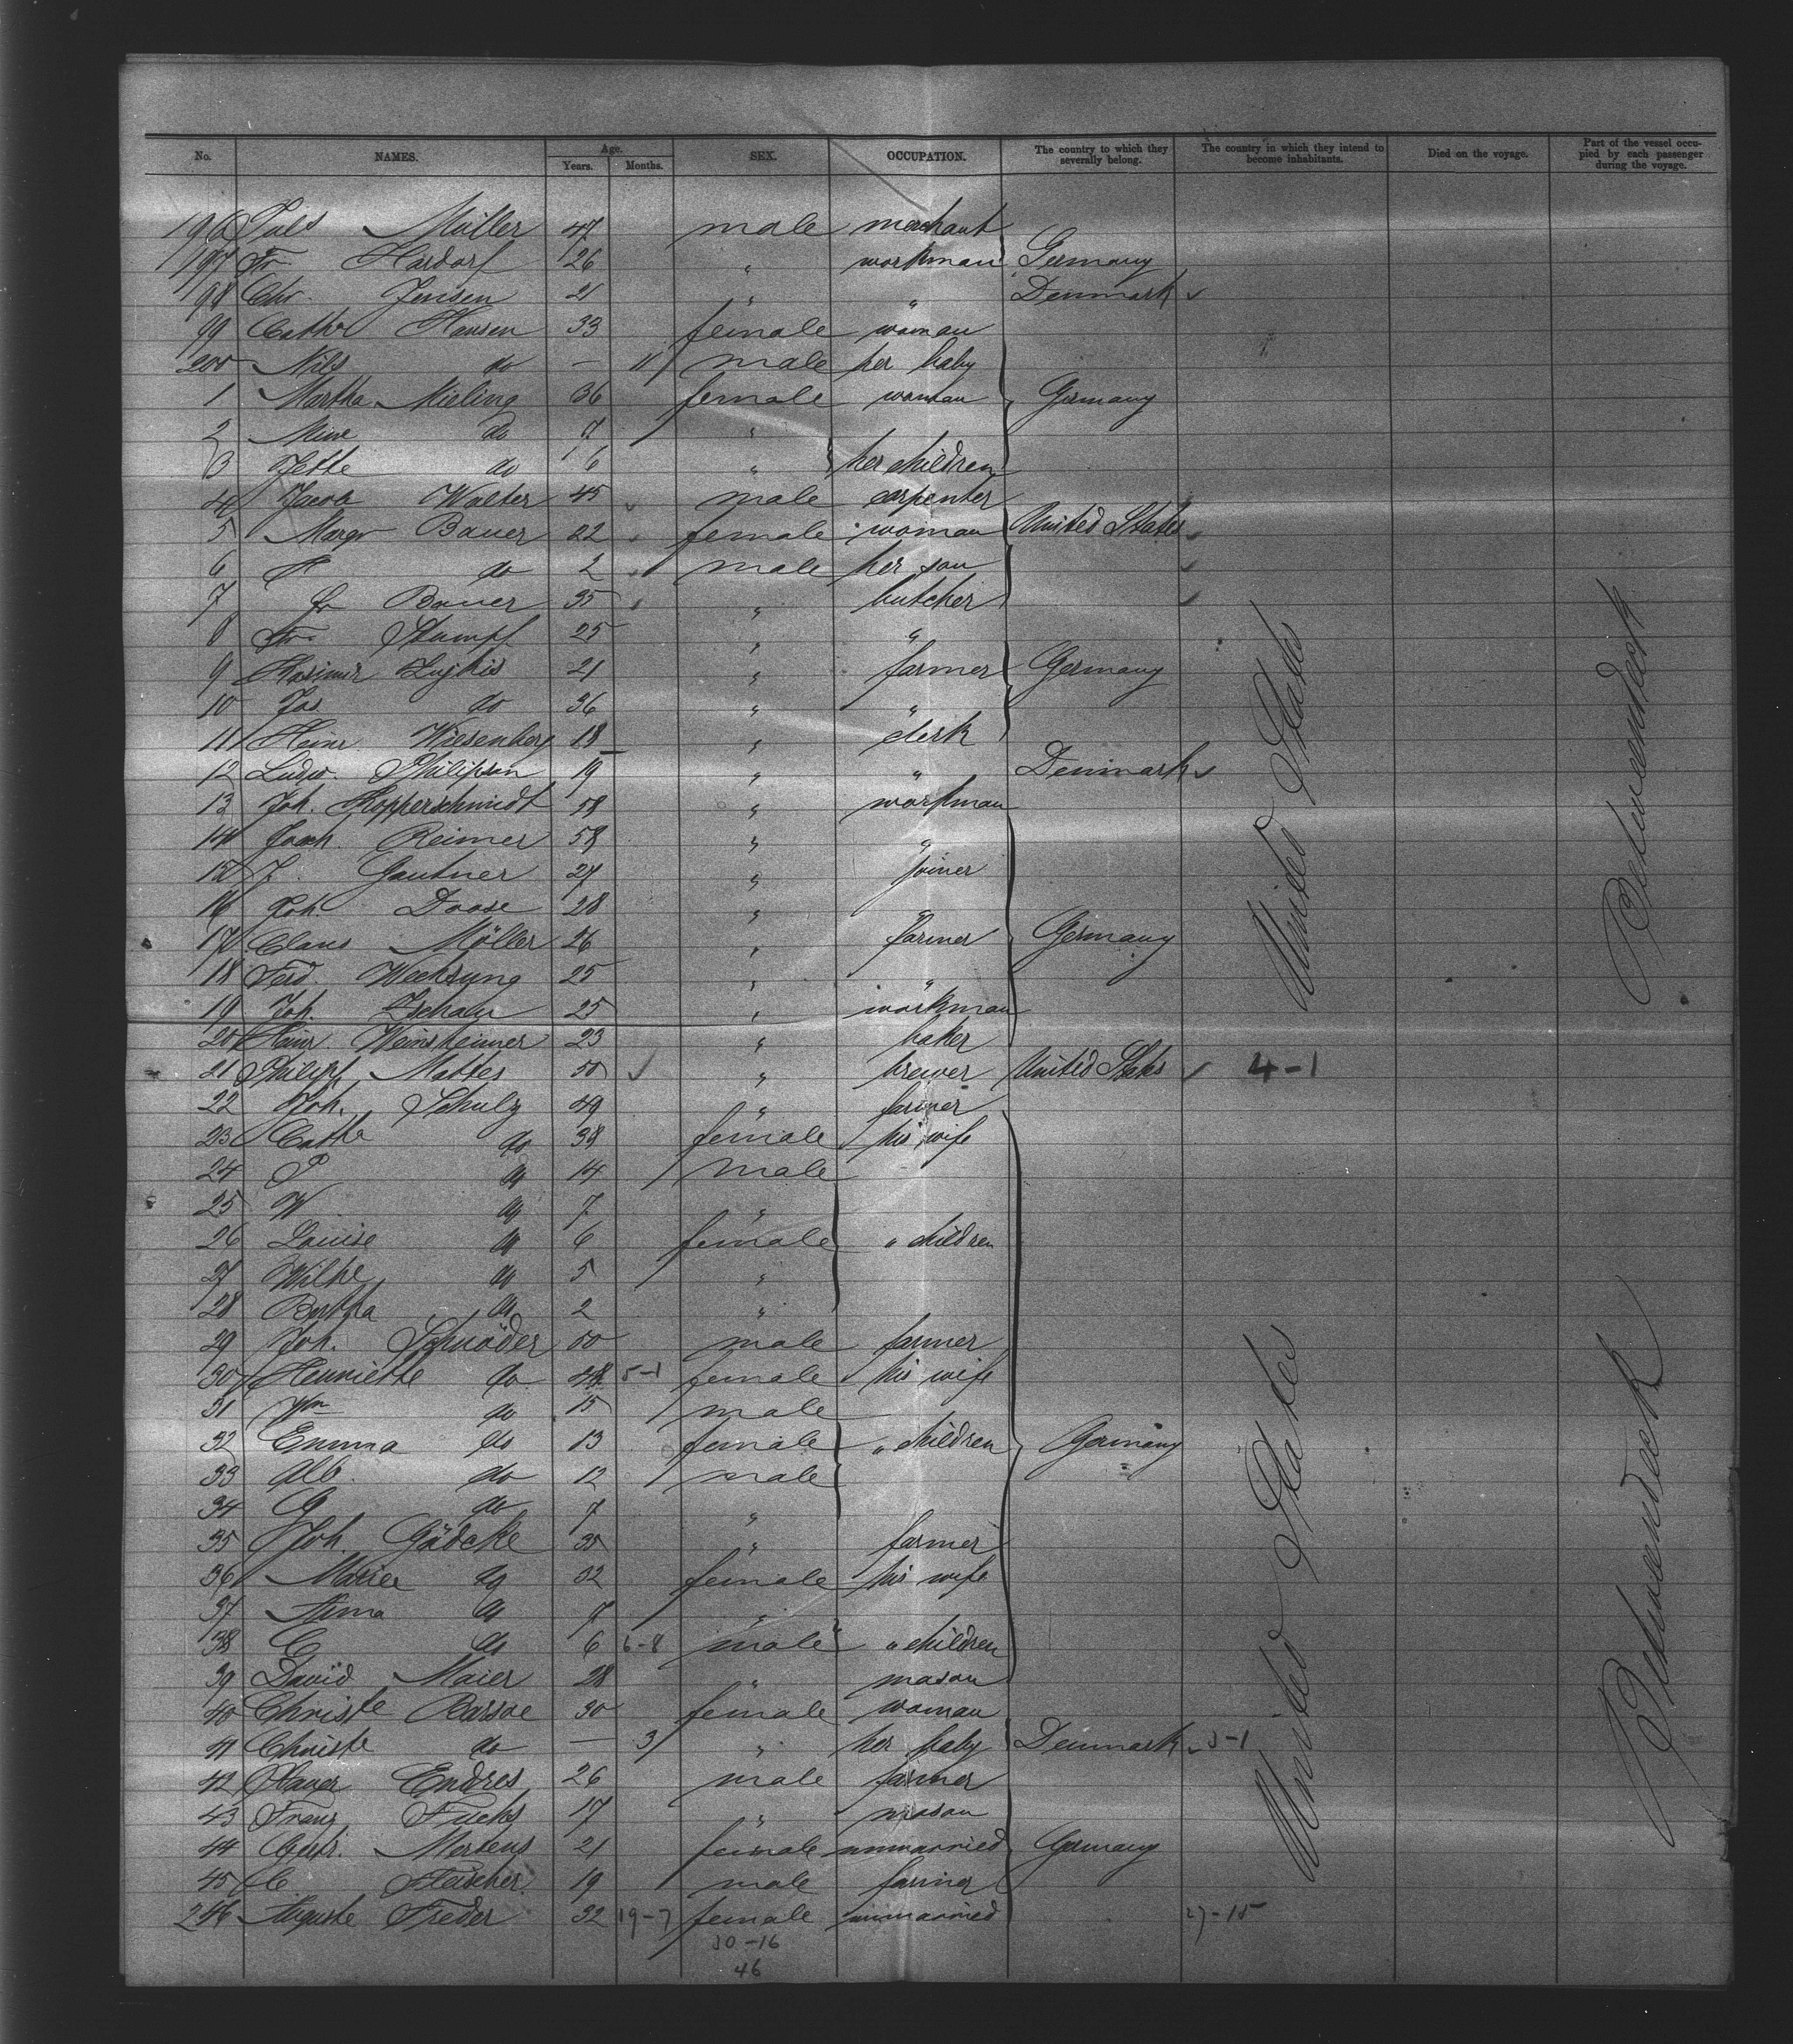 No. NAMES. Age. Years. Months. SEX. OCCUPATION. The country to which they severally belong. The country in which they intend to become inhabitants. Died on the voyage. Part of the vessel occupied by each passenger during the voyage.
196 Müller 47 male merchant
197 Fr. Hardorf 26 " workman Germany
98 Chr. Jensen 21 " " Denmark
99 Cathr Hansen 33 female woman
200 Nils do — 11 male her baby
1 Martha Mieling 36 female woman Germany
2 Mine do 7 "
3 Jette do 6 " her children
4 Jacob Walter 45 male carpenter
5 Margr Bauer 22 female woman United States
6 do 2 male her son
7 Fr Bauer 35 " butcher
8 Fr. Stumpf 25 " "
9 Kasimir 21 " farmer Germany
10 Jos do 36 " "
11 Heinr Wiesenberg 18 " clerk
12 Ludw. Philipsen 19 " " Denmark
13 Joh. Kopperschmidt 58 " workman
14 Joach. Reimer 58 " "
15 J. Gautner 27 " joiner
16 Joh. Doose 28 " "
17 Claus Möller 26 " farmer Germany
18 Ferd. Wechsung 25 " "
19 Joh. 25 " workman
20 Heinr. Weinsheimer 23 " baker
21 Philipp Mattes 50 " brewer United States 4-1
22 Joh. Schulz 49 " farmer
23 Cathe do 38 female his wife
24 P do 14 male
25 W. do 7 "
26 Louise do 6 female " children
27 Wilhe do 5 "
28 Bertha do 2 "
29 Joh. Schröder 50 male farmer
30 Henriette do 48 5-1 female his wife
31 Wm do 15 male
32 Emma do 13 female " children Germany
33 Alb. do 12 male
34 G do 7 "
35 Joh. Gädcke 35 " farmer
36 Marie do 32 female his wife
37 Anna do 7 "
38 C do 6 6-8 male " children
39 David Maier 28 " mason
40 Christe Barsoe 30 female woman
41 Christe do — 3 " her baby Denmark 3-1
42 Xaver Endres 26 male farmer
43 Franz Fuchs 17 " mason
44 Mertens 21 female unmarried Germany
45 C Fleischer 19 male farmer
246 Auguste Freder 32 19-7 female unmarried 27-15
30-16
46
United States
Betweendeck
United States
Betweendeck